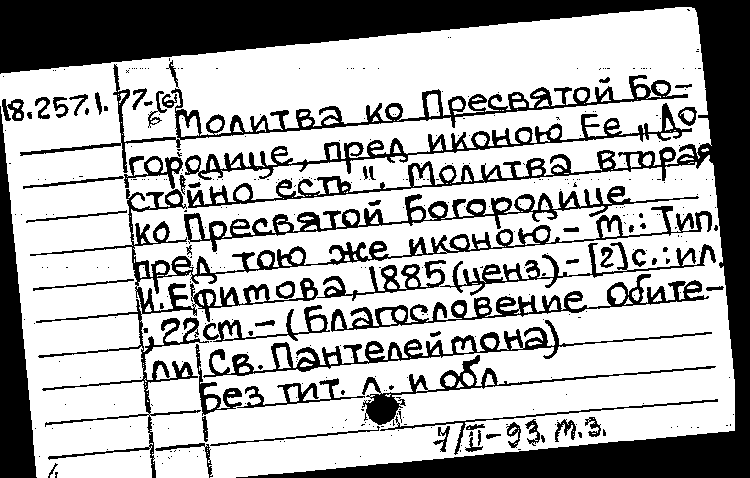 18.257.1.77-[6]
6
Молитва ко Пресвятой Бо-
городице, пред иконою Ее „До-
стойно есть". Молитва вторая
ко Пресвятой Богородице
пред тою же иконою.- М.: Тип.
И.Ефимова, 1885 (ценз.).- [2]с.: ил.
; 22 см.- (Благословение Обите-
ли Св. Пантелеймона).
Без тит. л. и обл.
4/II-93. М.З.